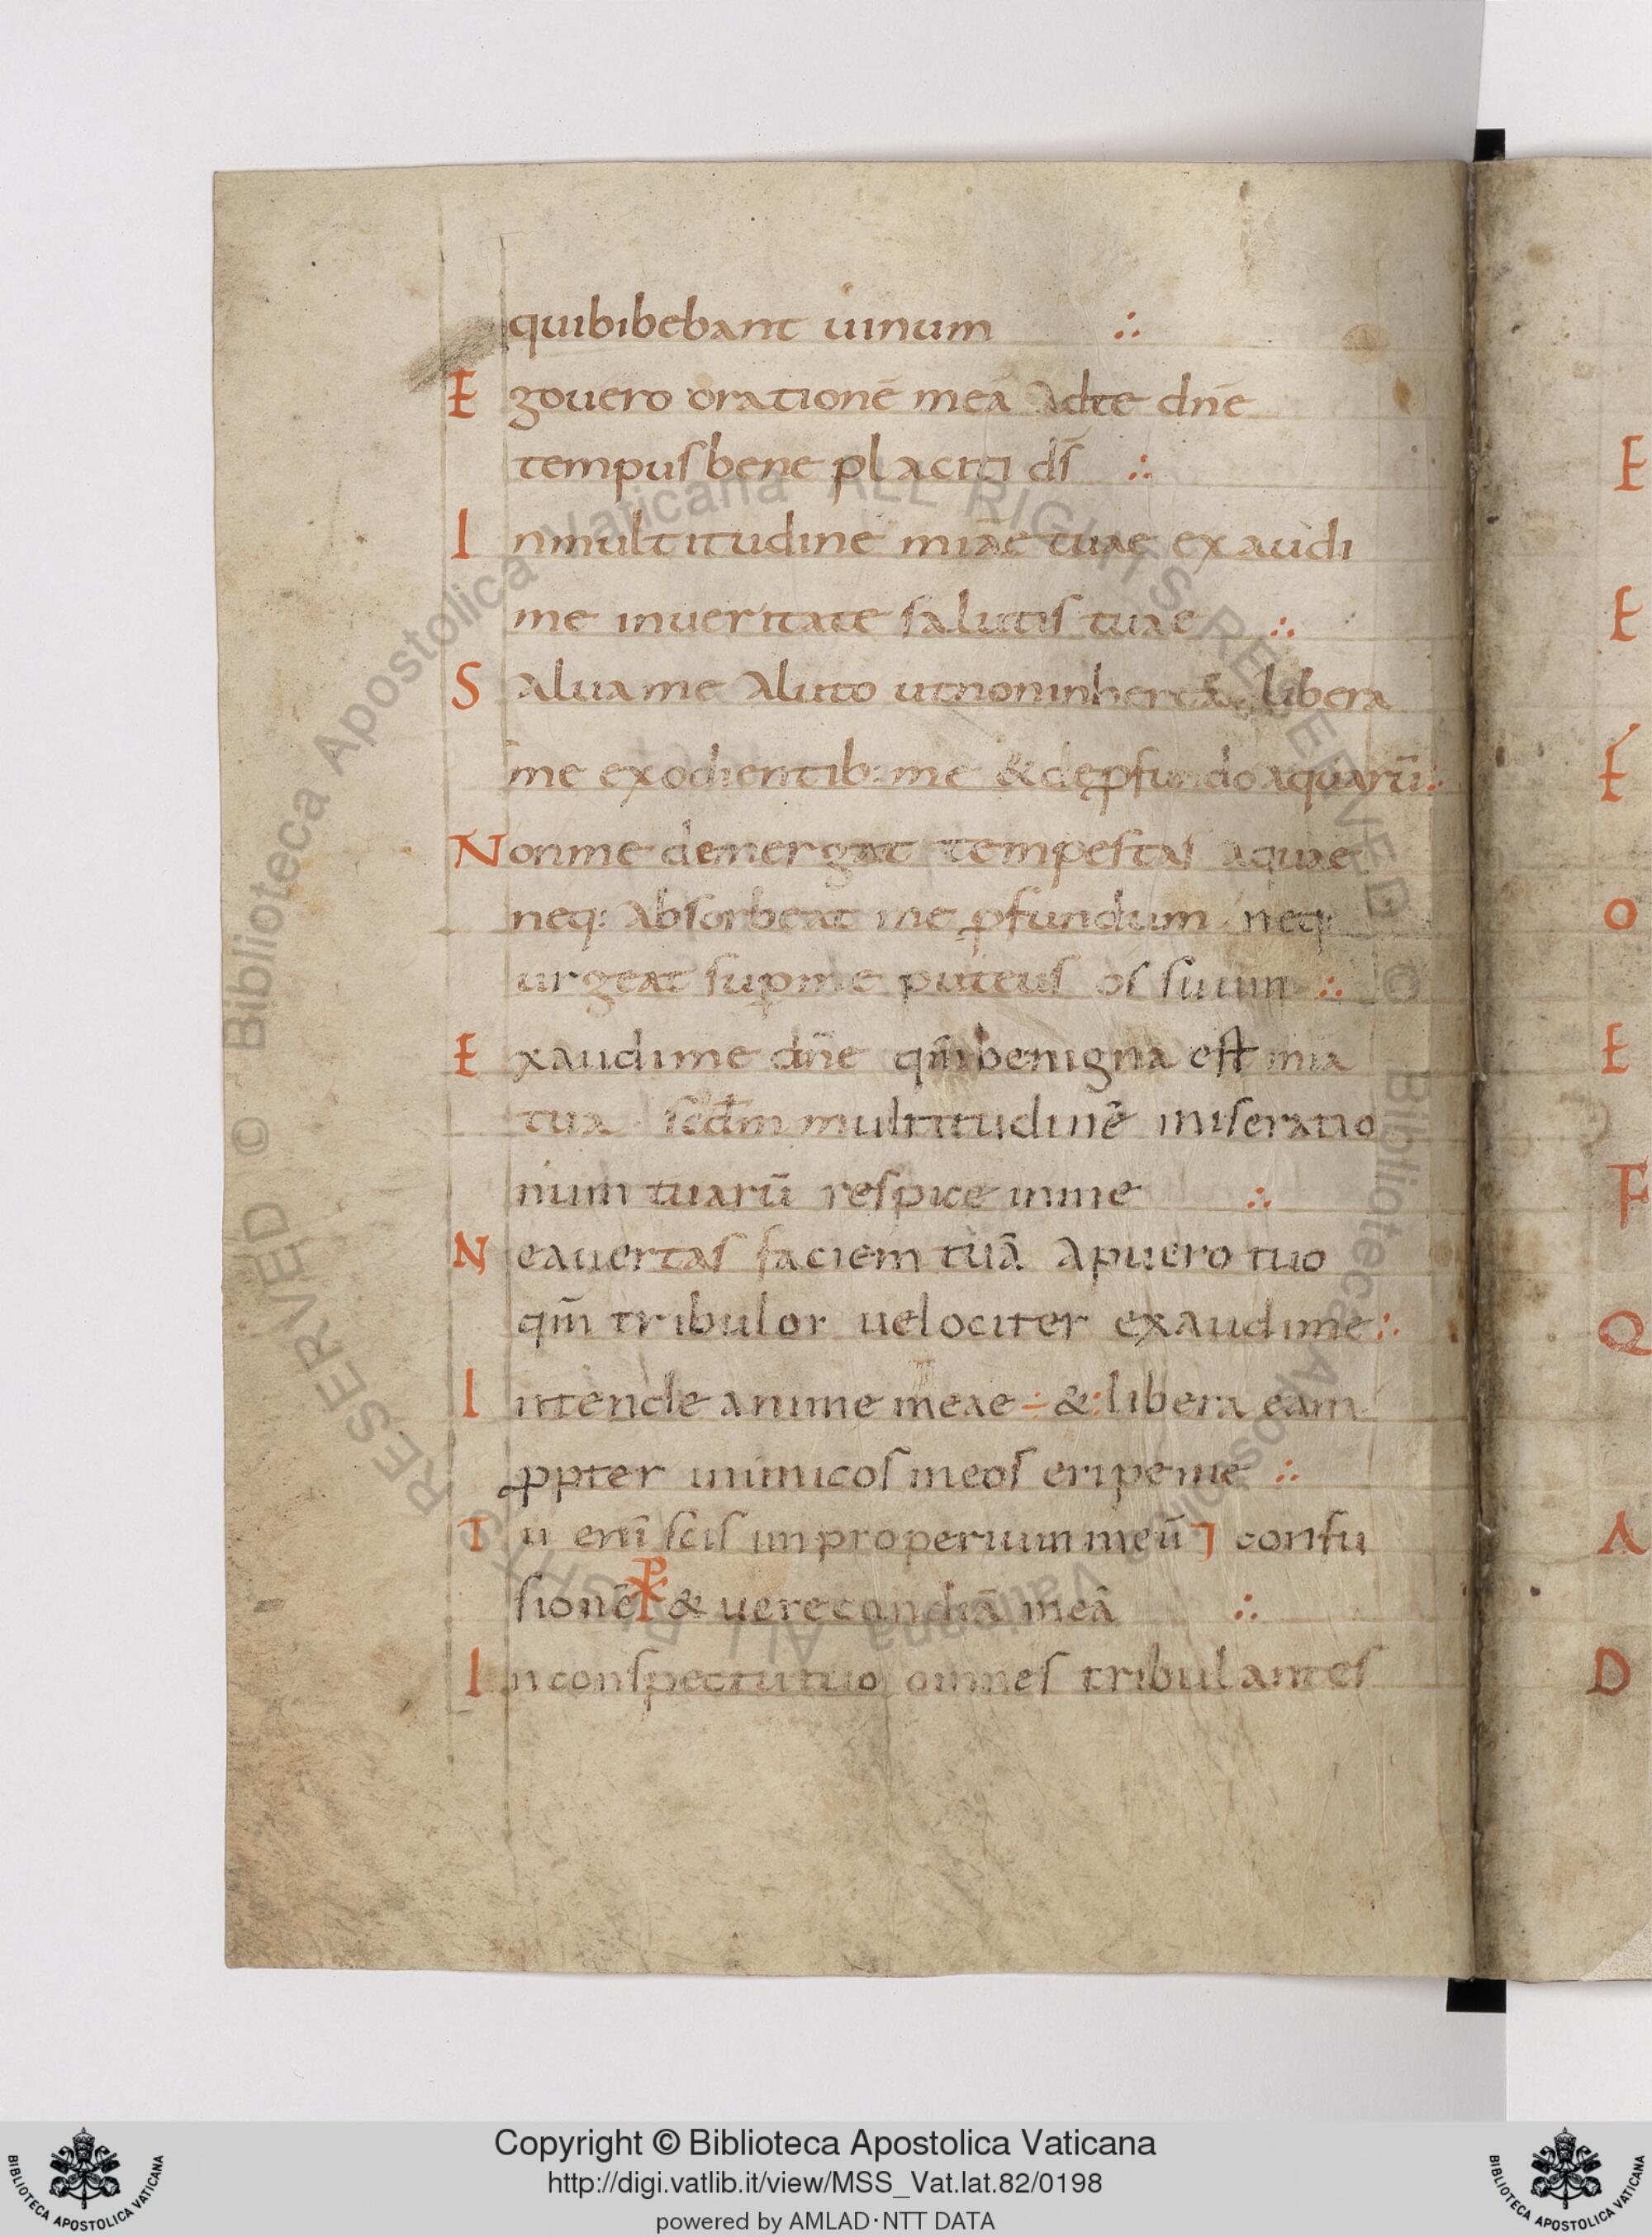 quibibebant uinum ∴
E gouero orationē meā adte dn̄e
tempus bene placiti ds̄ ∴
I nmultitudine miāe tuae exaudi
me inueritate salutis tuae ∴
S aluame aluto utnoninhereā libera
me exodientib: me & deꝓfundo aquarū ∴
N onme demergat tempestas aquae
neq: absorbeat me ꝓfundum neq:
urgeat suꝑme puteus os suum ∴
E xaudime dn̄e qm̄ benigna est mia
tua scd̄m multitudinē miseratio
num tuarū respice inme ∴
N eauertas faciem tuā apuero tuo
qm̄ tribulor uelociter exaudime ∴
I ntende anime meae ÷ &: libera eam
ꝓpter inimicos meos eripeme ∴
T u enī scis inproperium meū ⁊ confu
sionē ☧ & uerecundiā meā ∴
I nconspectutuo omnes tribulantes
E
E
E
O
E
F
Q
A
I
D
Copyright © Biblioteca Apostolica Vaticana
http://digi.vatlib.it/view/MSS_Vat.lat.82/0198
powered by AMLAD·NTT DATA
BIBLIOTECA APOSTOLICA VATICANA
BIBLIOTECA APOSTOLICA VATICANA
© Biblioteca Apostolica Vaticana ALL RIGHTS RESERVED © Biblioteca Apostolica Vaticana ALL RIGHTS RESERVED